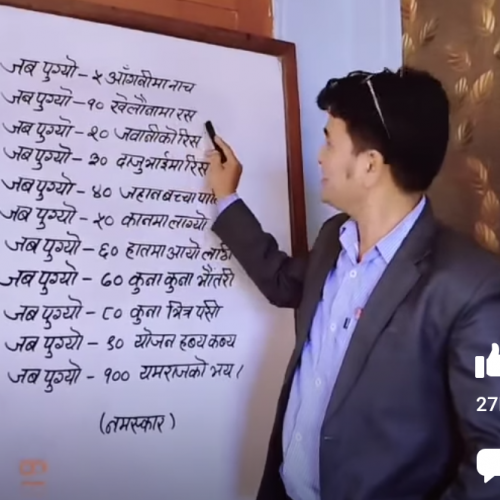 जब पुग्यो - ५ आँगनीमा नाच
जब पुग्यो - १० खेलौनामा रस
जब पुग्यो - २० जवानीको रिस
जब पुग्यो - ३० दाजुभाईमा रिस
जब पुग्यो - ४० जहान बच्चा
जब पुग्यो - ५० कानमा लाग्यो
जब पुग्यो - ६० हातमा आयो लाठी
जब पुग्यो - ७० कुना कुना भौंतरी
जब पुग्यो - ८० कुना भित्र पसी
जब पुग्यो - ९० योजन हब्य कब्य
जब पुग्यो - १०० यमराजको भय।
(नमस्कार)
27